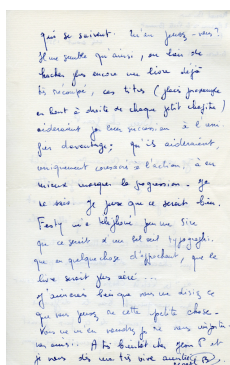 qui se suivent. Qu'en pensez-vous?
Il me semble qu'ainsi, au lieu de
hacher plus encore un livre déjà
très découpé, ces titres (
en haut à droite de chaque petit chapitre)
aideraient par leur succession à l'en
davantage; qu'ils aideraient,
uniquement consacré à l'action, à en
mieux marquer la progression. Je
ne sais. Je pense que ce serait bien.
Festy m'a téléphoné
que ce serait d'un bel œil typograph.
que quelque chose d'approchant, que le
livre serait plus aéré...
J'aimerais bien que vous me disiez ce
que vous pensez de cette petite chose.
Vous ne m'en voudrez pas de vous
ainsi. A très bientôt cher Jean P. et
je vous dis ma très vive amitié